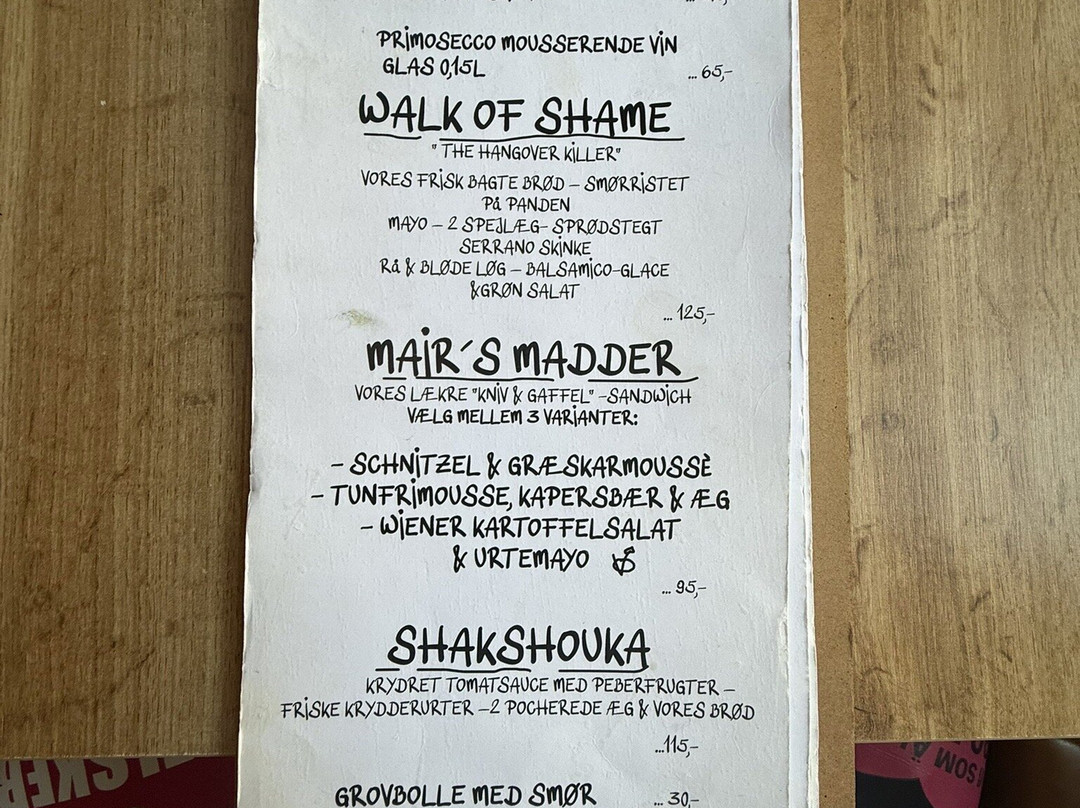 PRIMOSECCO MOUSSERENDE VIN
GLAS 0,15L ... 65,-
WALK OF SHAME
"THE HANGOVER KILLER"
VORES FRISK BAGTE BRØD – SMØRRISTET
På PANDEN
MAYO – 2 SPEJLÆG- SPRØDSTEGT
SERRANO SKINKE
Rå & BLØDE LØG – BALSAMICO-GLACE
&GRØN SALAT
... 125,-
MAIR´S MADDER
VORES LÆKRE "KNIV & GAFFEL" -SANDWICH
VÆLG MELLEM 3 VARIANTER:
– SCHNITZEL & GRÆSKARMOUSSÈ
– TUNFRIMOUSSE, KAPERSBÆR & ÆG
– WIENER KARTOFFELSALAT
& URTEMAYO
... 95,-
SHAKSHOUKA
KRYDRET TOMATSAUCE MED PEBERFRUGTER –
FRISKE KRYDDERURTER –2 POCHEREDE ÆG & VORES BRØD
...115,-
GROVBOLLE MED SMØR ... 30,-
SOM